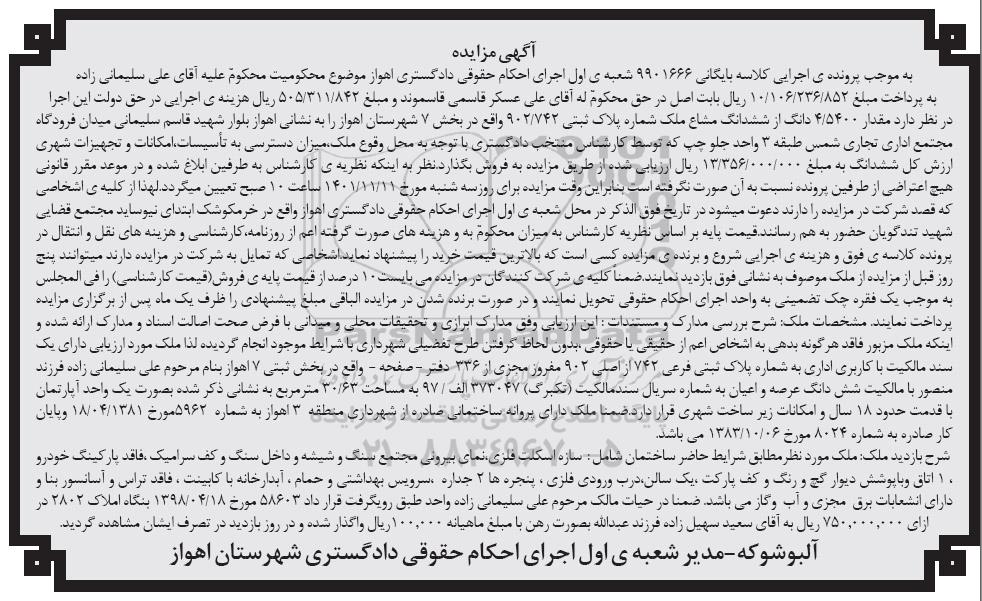 آگهی مزایده
به موجب پرونده ی اجرایی کلاسه بایگانی ۹۹۰۱۶۶۶ شعبه ی اول اجرای احکام حقوقی دادگستری اهواز موضوع محکومیت محکومٌ علیه آقای علی سلیمانی زاده
به پرداخت مبلغ ۱۰/۱۰۶/۲۳۶/۸۵۲ ریال بابت اصل در حق محکومٌ له آقای علی عسکر قاسمی قاسموند و مبلغ ۵۰۵/۳۱۱/۸۴۲ ریال هزینه ی اجرایی در حق دولت این اجرا
در نظر دارد مقدار ۴/۵۴۰۰ دانگ از ششدانگ مشاع ملک شماره پلاک ثبتی ۹۰۲/۷۴۲ واقع در بخش ۷ شهرستان اهواز را به نشانی اهواز بلوار شهید قاسم سلیمانی میدان فرودگاه
مجتمع اداری تجاری شمس طبقه ۳ واحد جلو چپ که توسط کارشناس منتخب دادگستری با توجه به محل وقوع ملک،میزان دسترسی به تأسیسات،امکانات و تجهیزات شهری
ارزش کل ششدانگ به مبلغ ۱۳/۳۵۶/۰۰۰/۰۰۰ ریال ارزیابی شده از طریق مزایده به فروش بگذارد.نظر به اینکه نظریه ی کارشناس به طرفین ابلاغ شده و در موعد مقرر قانونی
هیچ اعتراضی از طرفین پرونده نسبت به آن صورت نگرفته است بنابراین وقت مزایده برای روزسه شنبه مورخ ۱۴۰۱/۱۱/۱۱ ساعت ۱۰ صبح تعیین میگردد.لهذا از کلیه ی اشخاصی
که قصد شرکت در مزایده را دارند دعوت میشود در تاریخ فوق الذکر در محل شعبه ی اول اجرای احکام حقوقی دادگستری اهواز واقع در خرمکوشک ابتدای نیوساید مجتمع قضایی
شهید تندگویان حضور به هم رسانند.قیمت پایه بر اساس نظریه کارشناس به میزان محکومٌ به و هزینه های صورت گرفته اعم از روزنامه،کارشناسی و هزینه های نقل و انتقال در
پرونده کلاسه ی فوق و هزینه ی اجرایی شروع و برنده ی مزایده کسی است که بالاترین قیمت خرید را پیشنهاد نماید.اشخاصی که تمایل به شرکت در مزایده دارند میتوانند پنج
روز قبل از مزایده از ملک موصوف به نشانی فوق بازدید نمایند.ضمنا کلیه ی شرکت کنندگان در مزایده می بایست ۱۰ درصد از قیمت پایه ی فروش(قیمت کارشناسی) را فی المجلس
به موجب یک فقره چک تضمینی به واحد اجرای احکام حقوقی تحویل نمایند و در صورت برنده شدن در مزایده الباقی مبلغ پیشنهادی را ظرف یک ماه پس از برگزاری مزایده
پرداخت نمایند. مشخصات ملک: شرح بررسی مدارک و مستندات : این ارزیابی وفق مدارک ابرازی و تحقیقات محلی و میدانی با فرض صحت اصالت اسناد و مدارک ارائه شده و
اینکه ملک مزبور فاقد هرگونه بدهی به اشخاص اعم از حقیقی یا حقوقی ،بدون لحاظ گرفتن طرح تفضیلی شهرداری با شرایط موجود انجام گردیده لذا ملک مورد ارزیابی دارای یک
سند مالکیت با کاربری اداری به شماره پلاک ثبتی فرعی ۷۴۲ از اصلی ۹۰۲ مفروز مجزی از ۳۳۶ دفتر – صفحه - واقع در بخش ثبتی ۷ اهواز بنام مرحوم علی سلیمانی زاده فرزند
منصور با مالکیت شش دانگ عرصه و اعیان به شماره سریال سندمالکیت (تکبرگ) ۳۷۳۰۴۷ الف / ۹۷ به مساحت ۳۰/۶۳ مترمربع به نشانی ذکر شده بصورت یک واحد آپارتمان
با قدمت حدود ۱۸ سال و امکانات زیر ساخت شهری قرار دارد.ضمنا ملک دارای پروانه ساختمانی صادره از شهرداری منطقه ۳ اهواز به شماره ۵۹۶۲مورخ ۱۸/۰۴/۱۳۸۱ وپایان
کار صادره به شماره ۸۰۲۴ مورخ ۱۳۸۳/۱۰/۰۶ می باشد.
شرح بازدید ملک: ملک مورد نظر مطابق شرایط حاضر ساختمان شامل : سازه اسکلت فلزی،نمای بیرونی مجتمع سنگ و شیشه و داخل سنگ و کف سرامیک ،فاقد پارکینگ خودرو
، ۱ اتاق وباپوشش دیوار گچ و رنگ و کف پارکت ،یک سالن،درب ورودی فلزی ، پنجره ها ۲ جداره ،سرویس بهداشتی و حمام ، آبدارخانه با کابینت ، فاقد تراس و آسانسور بنا و
دارای انشعابات برق مجزی و آب وگاز می باشد. ضمنا در حیات مالک مرحوم علی سلیمانی زاده واحد طبق رویگرفت قرار داد ۵۸۶۰۳ مورخ ۱۳۹۸/۰۴/۱۸ بنگاه املاک ۲۸۰۲ در
ازای ۷۵۰,۰۰۰,۰۰۰ ریال به آقای سعید سهیل زاده فرزند عبدالله بصورت رهن با مبلغ ماهیانه ۱۰۰,۰۰۰ریال واگذار شده و در روز بازدید در تصرف ایشان مشاهده گردید.
آلبوشوکه-مدیر شعبه ی اول اجرای احکام حقوقی دادگستری شهرستان اهواز
ParsNamadData
پایگاه اطلاع رسانی مناقصه و مزایده
۰۲۱-۸۸۳۴۹۶۷۰-۵